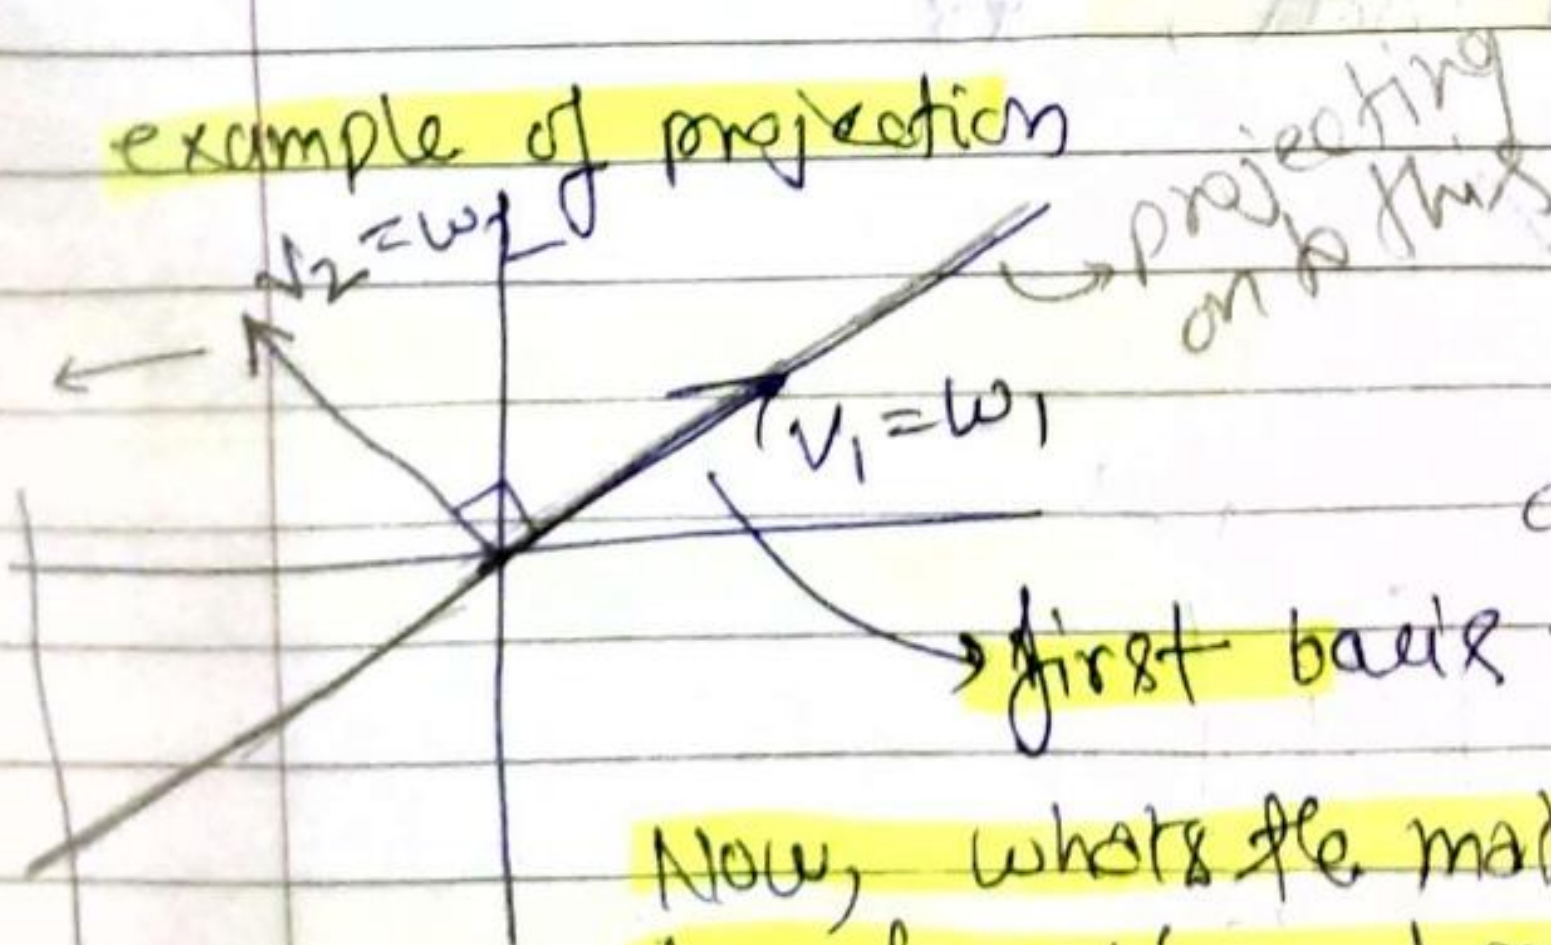 example of projection
projecting
on to this
v2 = w2
v1 = w1
first basis
Now, whats the mat